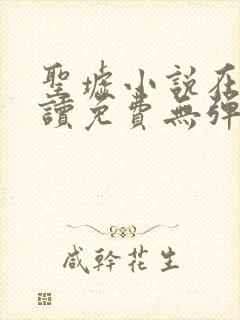 聖墟小說在
讀免費無彈
咸幹花生